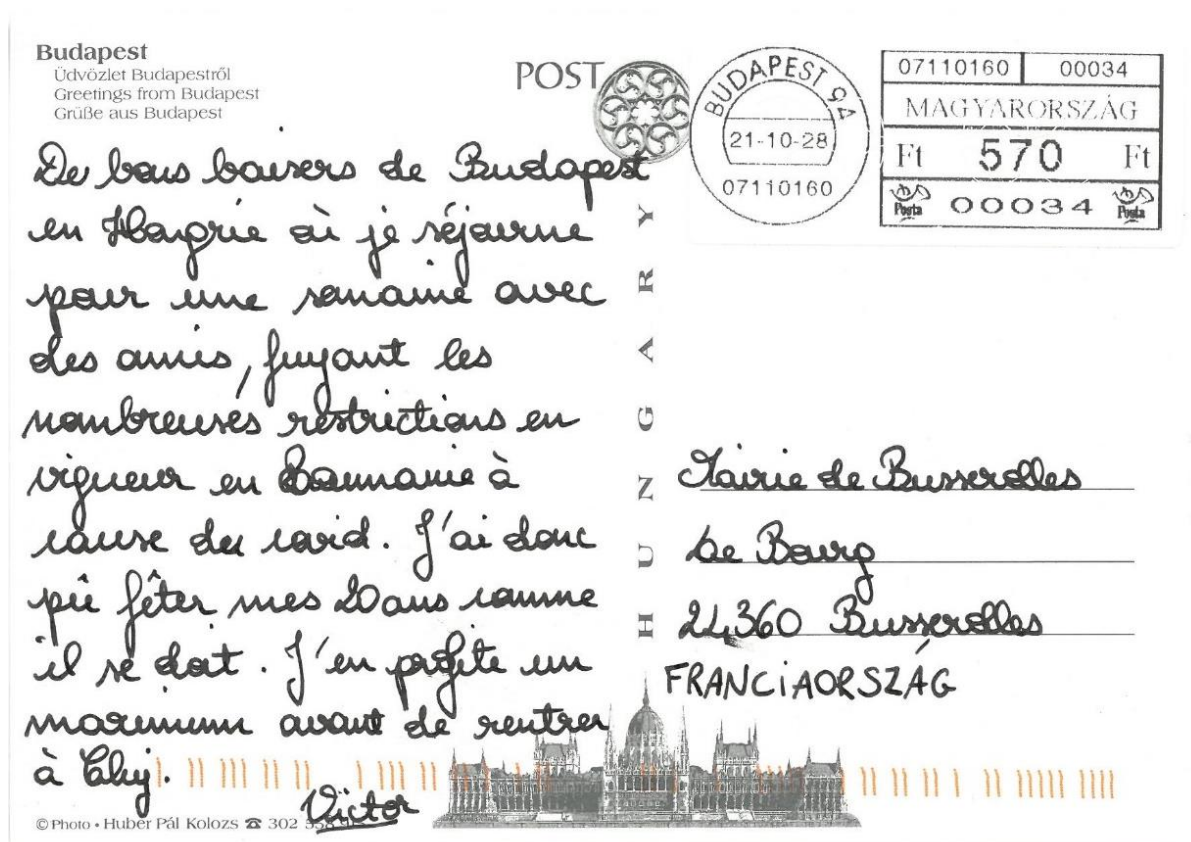 Budapest
Üdvözlet Budapestről
Greetings from Budapest
Grüße aus Budapest
POST
BUDAPEST 94
21-10-28
07110160
07110160 00034
MAGYARORSZÁG
Ft 570 Ft
Posta 00034 Posta
De bons baisers de Budapest
en Hongrie où je séjourne
pour une semaine avec
des amis, fuyant les
nombreuses restrictions en
vigueur en Roumanie à
cause du covid. J'ai donc
pû fêter mes 20 ans comme
il se doit. J'en profite un
maximum avant de rentrer
à Cluj.
Victor
HUNGARY
Mairie de Busserolles
Le Bourg
24360 Busserolles
FRANCIAORSZÁG
© Photo • Huber Pál Kolozs ☎ 302